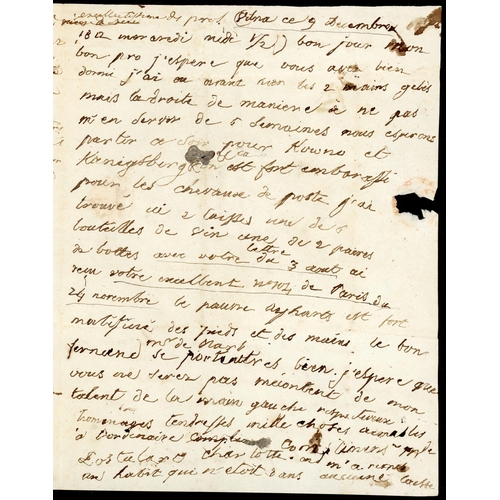 des prof. Vilna ce 9 Decembre
1812 mercredi midi 1/2)) bon jour mon
bon pro j'espere que vous avez bien
dormi j'ai eu avant hier les 2 mains gelés
mais la droite de maniere à ne pas
m'en servir de 5 semaines nous esperons
partir ce soir pour Kowno et
Kœnigsberg on est fort embarassé
pour les chevaux de poste j'ai
trouvé ici 2 caisses une de 6
bouteilles de vin une de 2 paires
de bottes avec votre lettre du 3 aout ai
reçu votre excellent n° 104 de Paris du
24 novembre le pauvre est fort
maltraité des pieds et des mains le bon
mr de se porte tres bien j'espere que
vous ne serez pas mécontent de mon
talent de la main gauche respectueux
hommages tendresses mille choses aimables
à l'ordinaire
charlotte m'a remis
un habit qui n'etoit dans aucune caisse